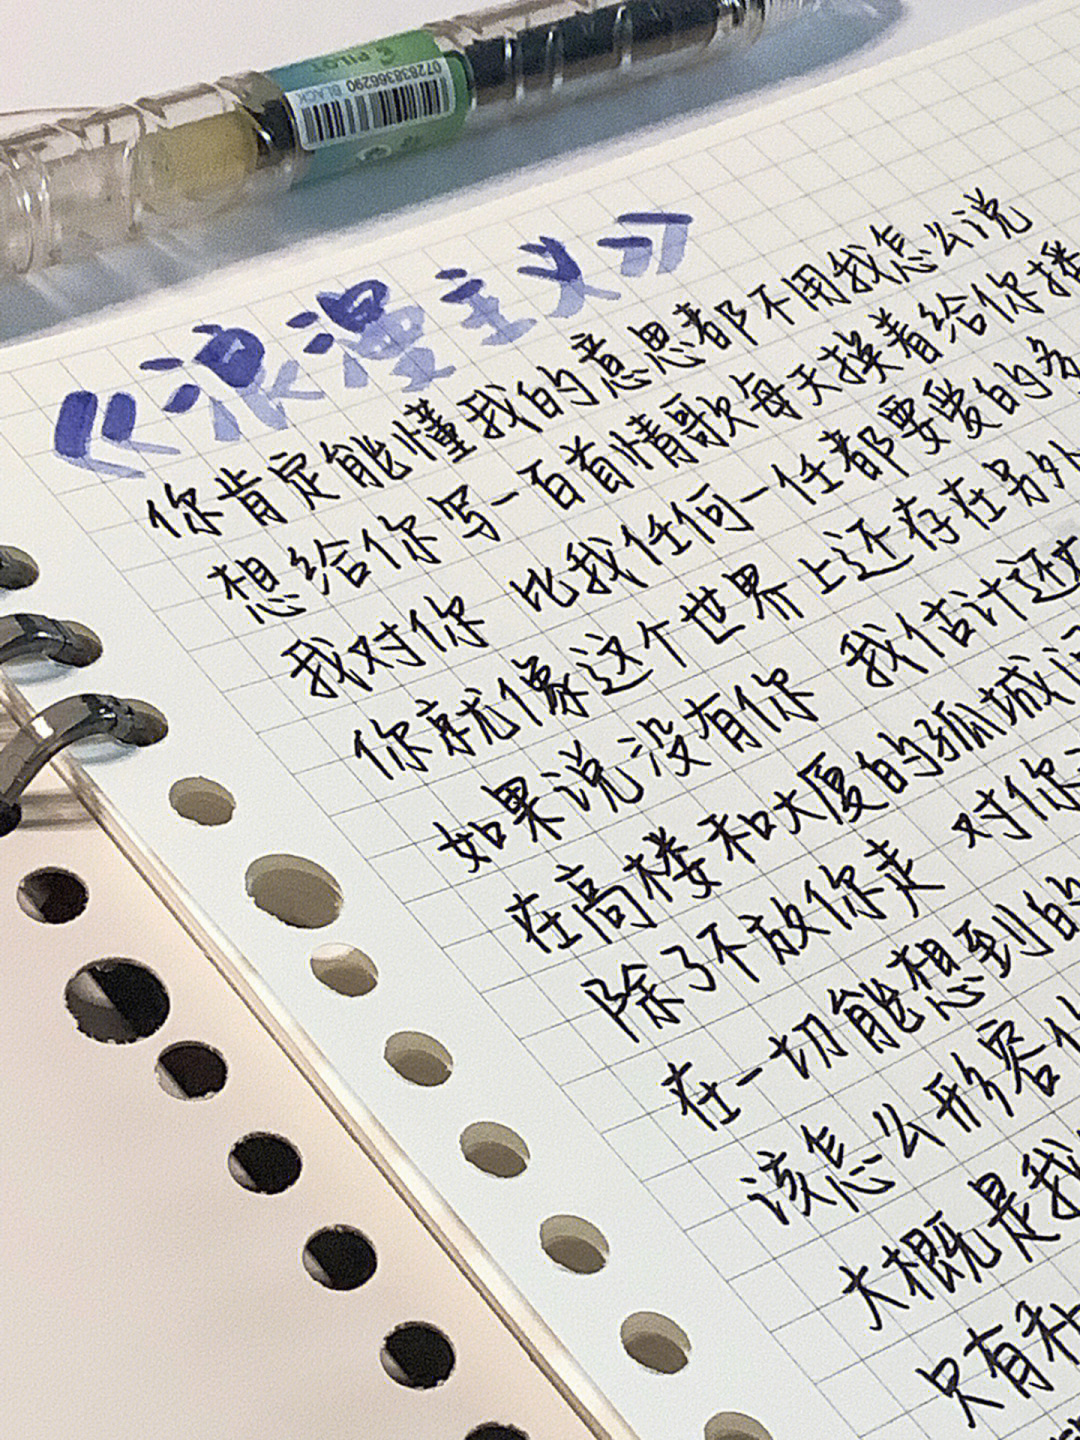 PILOT
072838366290
BLACK
《浪漫主义》
你肯定能懂我的意思都不用我怎么说
想给你写一百首情歌每天换着给你播
我对你 比我任何一任都要爱的多
你就像这个世界上还存在另外
如果说没有你 我估计还
在高楼和大厦的孤城
除了不放你走 对你
在一切能想到的
该怎么形容
大概是我
只有和